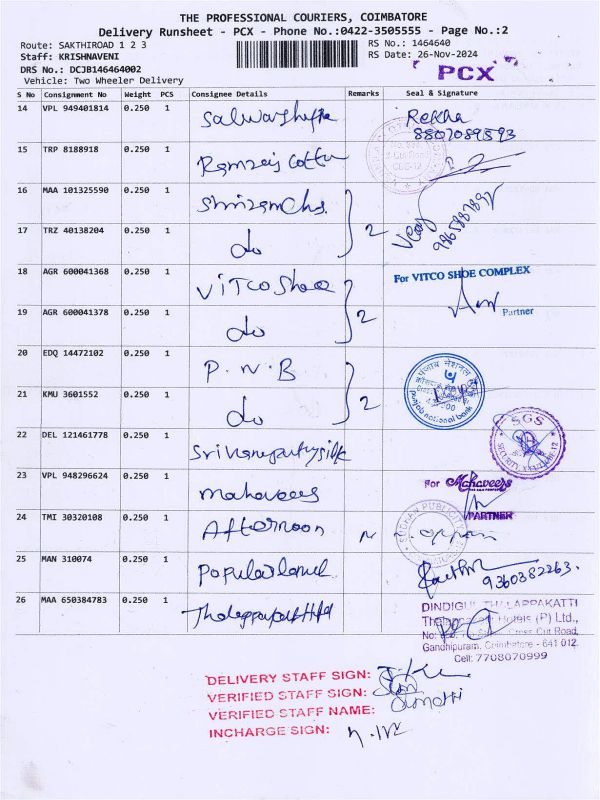 THE PROFESSIONAL COURIERS, COIMBATORE
Delivery Runsheet - PCX - Phone No.:0422-3505555 - Page No.:2
Route: SAKTHIROAD 1 2 3
RS No.: 1464640
Staff: KRISHNAVENI
RS Date: 26-Nov-2024
DRS No.: DCJB146464002
Vehicle: Two Wheeler Delivery
PCX
S No Consignment No Weight PCS Consignee Details Remarks Seal & Signature
14 VPL 949401814 0.250 1 Rekha
8807089593
15 TRP 8188918 0.250 1
16 MAA 101325590 0.250 1
17 TRZ 40138204 0.250 1 do 2
18 AGR 600041368 0.250 1 VITCO Shoe For VITCO SHOE COMPLEX
Partner
19 AGR 600041378 0.250 1 do 2
20 EDQ 14472102 0.250 1 P.N.B
पंजाब नैशनल
punjab national bank
21 KMU 3601552 0.250 1 do 2
22 DEL 121461778 0.250 1
SGS
23 VPL 948296624 0.250 1 mahaveers For Mahaveers
PARTNER
24 TMI 30320108 0.250 1 Afternoon
25 MAN 310074 0.250 1 Popular
9360382263.
26 MAA 650384783 0.250 1
DINDIGUL THALAPPAKATTI
Hotels (P) Ltd.,
Cross Cut Road,
Gandhipuram, Coimbatore - 641 012.
Cell: 7708070999
DELIVERY STAFF SIGN:
VERIFIED STAFF SIGN:
VERIFIED STAFF NAME:
INCHARGE SIGN: